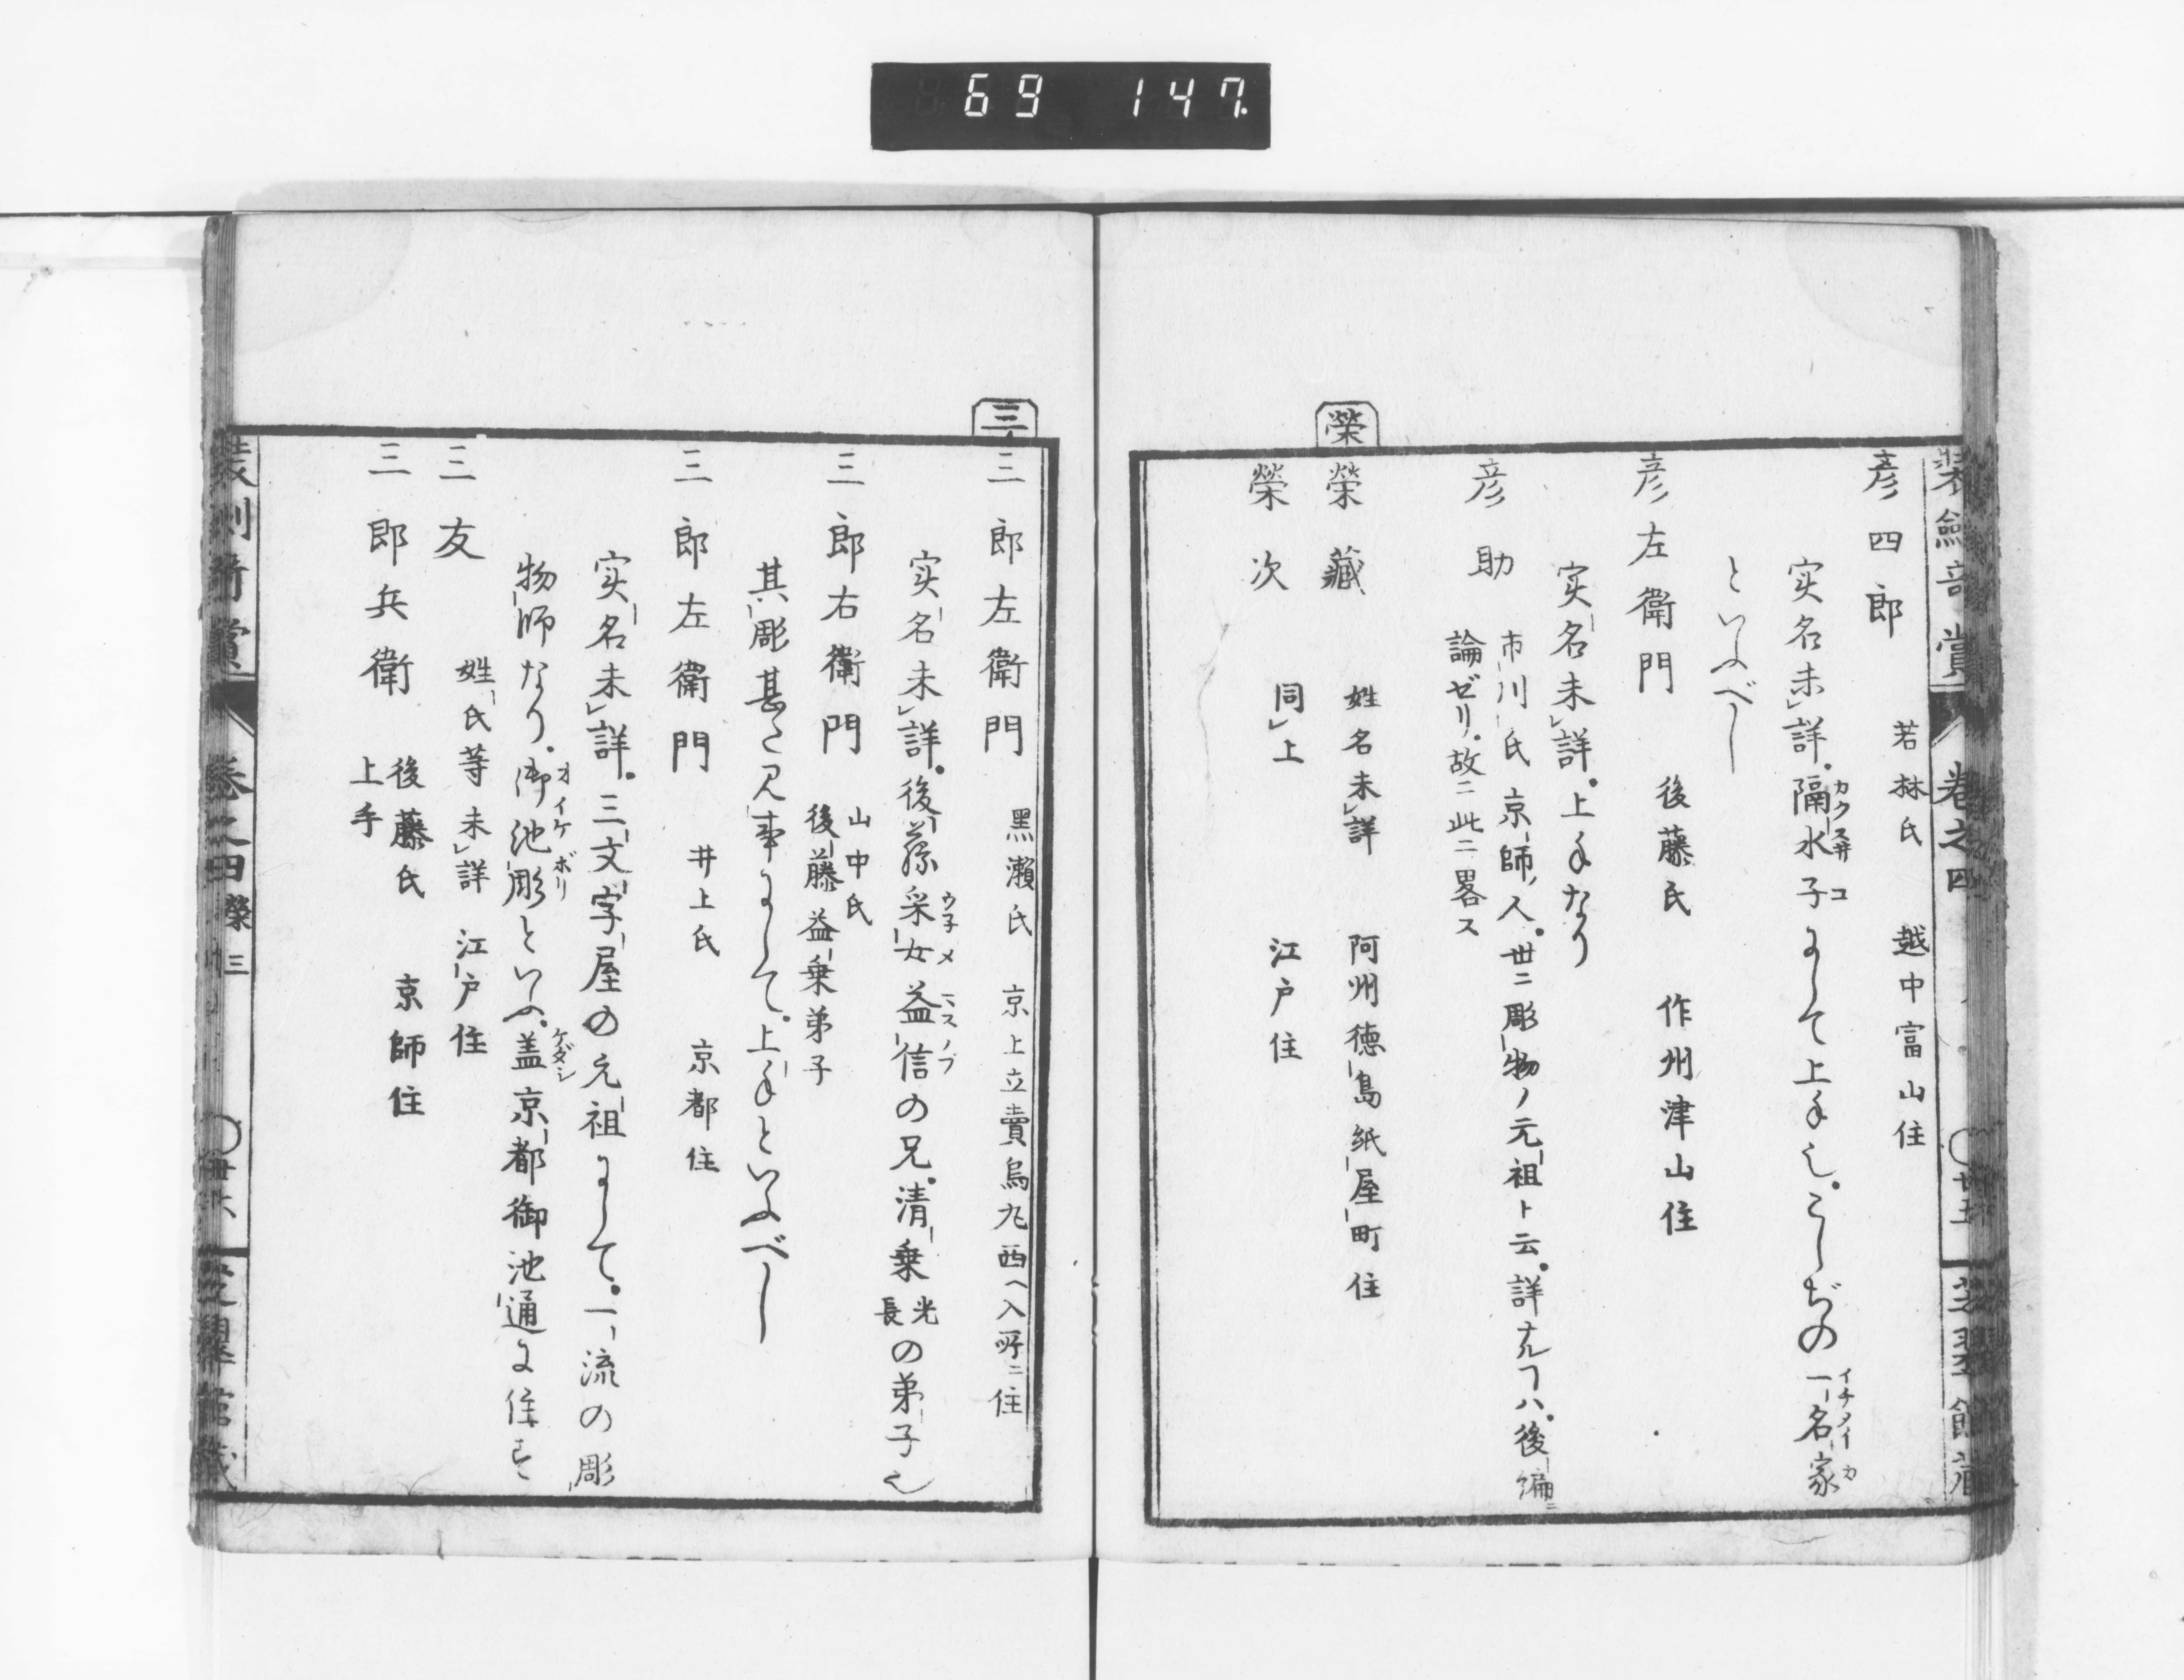 69 147.
装劍竒賞 巻之四 〇卅五
彦四郎 若林氏 越中富山住
実名未詳。隔水子にして上手也。こしぢの一名家
カクスヰコ イチメイカ
といふべし
彦左衛門 後藤氏 作州津山住
実名未詳。上手なり
彦助 市川氏京師ノ人。世ニ彫物ノ元祖ト云。詳ナルヿハ。後編ニ
論ゼリ。故ニ此ニ畧ス
榮
榮藏 姓名未詳 阿州徳島紙屋町住
榮次 同上 江戸住
三
三郎左衛門 黒瀬氏 京上立賣烏丸西ヘ入町ニ住
実名未詳。後藤采女益信の兄。清乗光長の弟子也
ウ子メ マスノブ
三郎右衛門 山中氏
後藤益乗弟子
其彫甚た見事にして。上手といふべし
三郎左衛門 井上氏 京都住
実名未詳。三文字屋の元祖にして。一流の彫
物師なり。御池彫といふ。盖京都御池通に住す
オイケボリ ケダシ
三友 姓氏等未詳 江戸住
三郎兵衛 後藤氏 京師住
上手
巻之四 榮 三 〇卅六